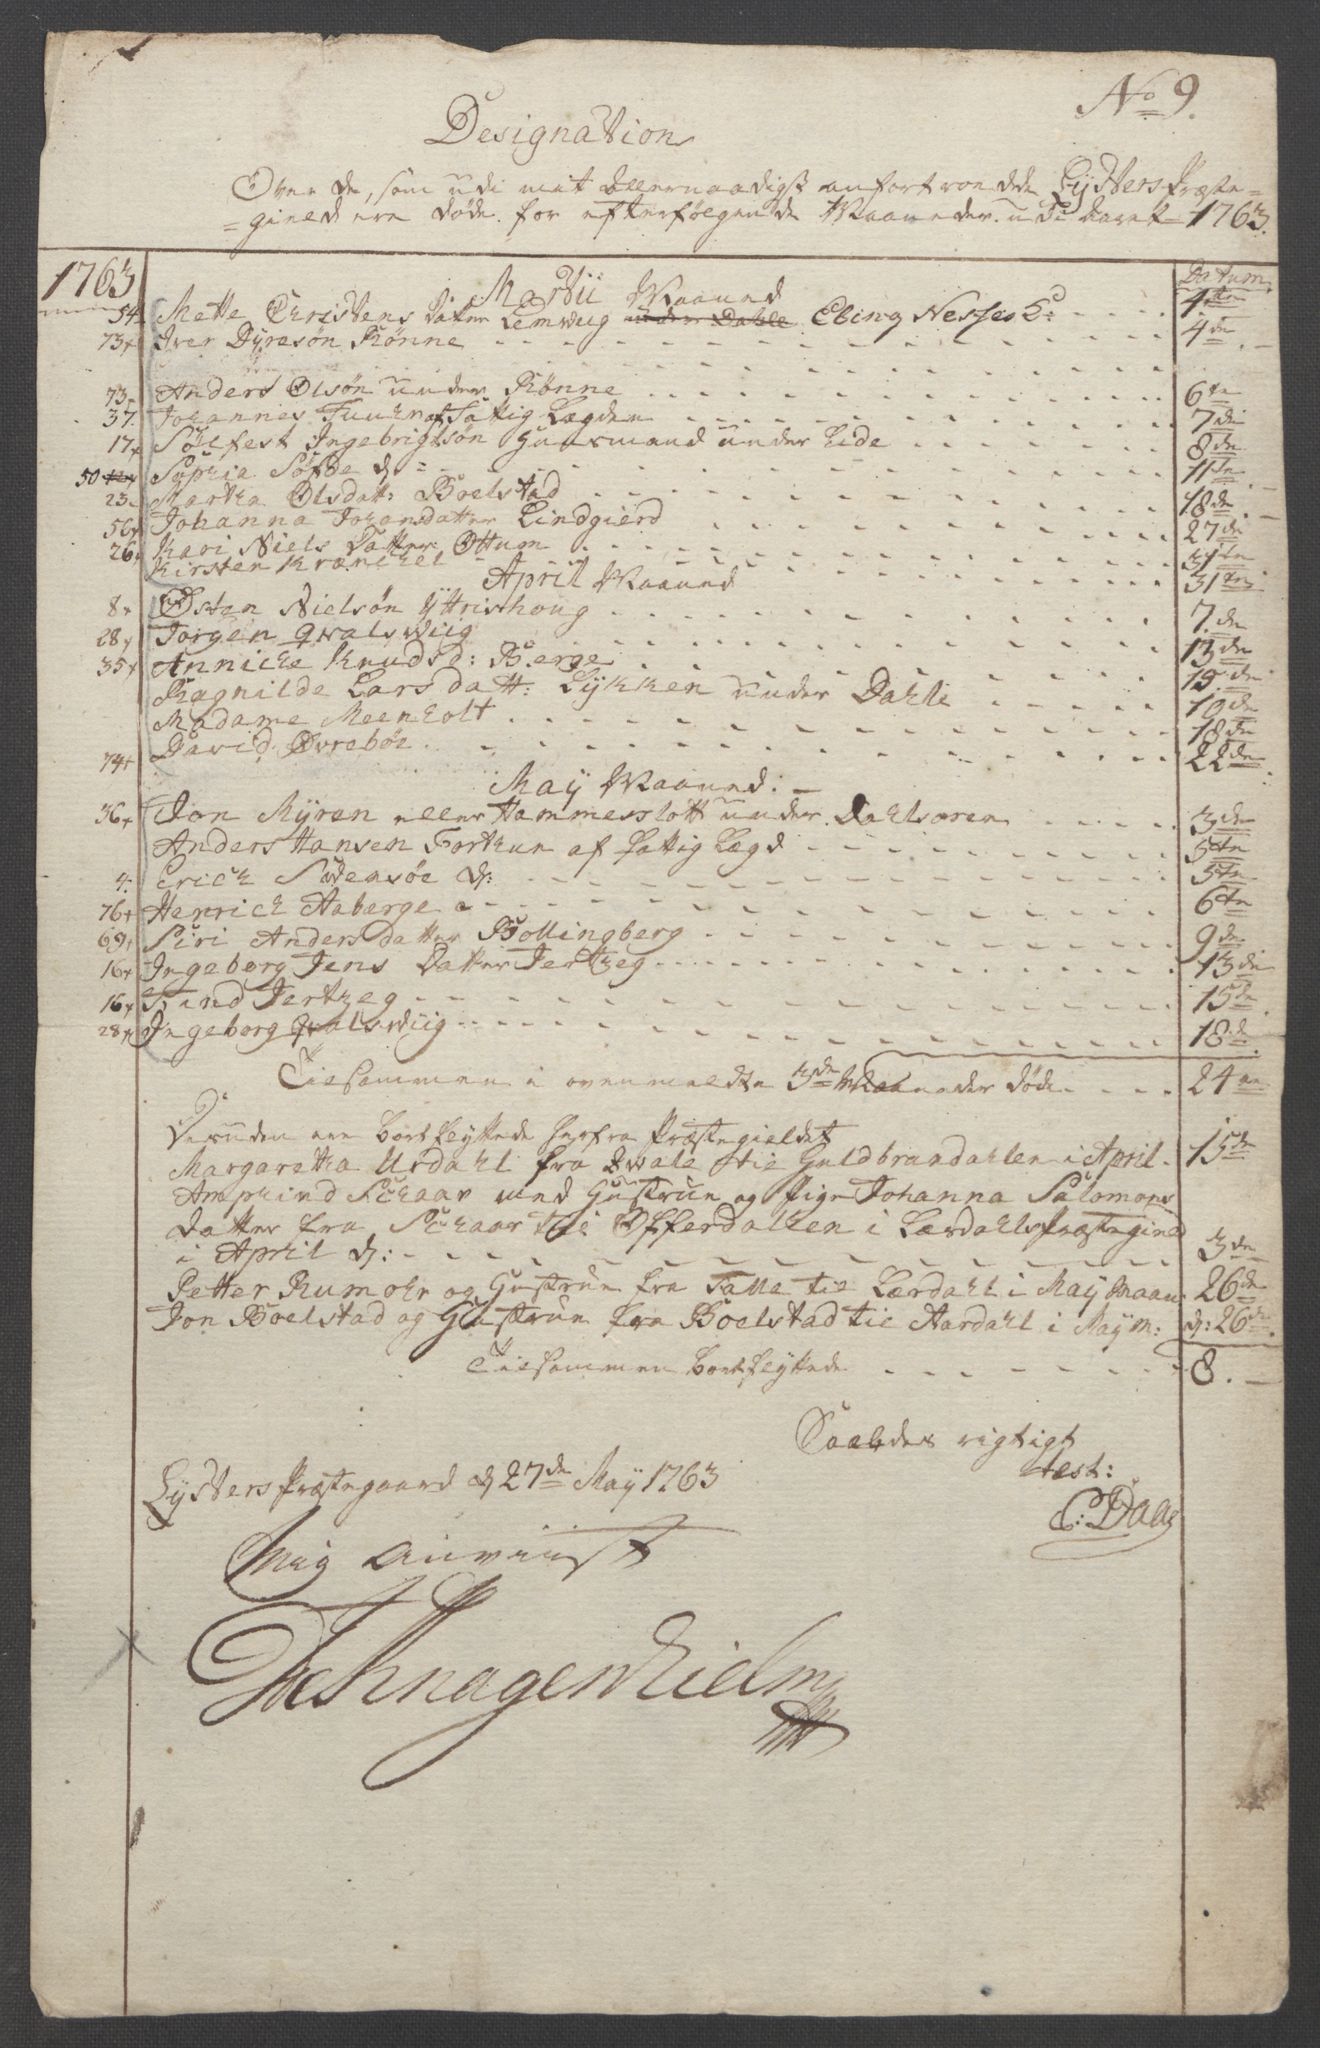 No 9.
Designation
Over de, som udi mit allernaadigst anfortroede Lysters Præste-
gield ere døde for efterfølgende Maaneder udi Aaret 1763.
1763 Martii Maaned Datum
54 Mette Christens Datter Lemwiig under Dahle Ebing Nesset 4den
73 Iver Dyresøn Rønne 4de
73 Anders Olsøn under Rønne 6te
37 Johannes Fuuhr af Fattig Lægden 7de
17 Sølfest Ingebrigtsøn Huusmand under Lide 8de
50 Sophia Søfde d: 11te
23 Martha Olsdatt: Boelstad 18de
56 Johanna Johansdatter Lindgierd 27de
26 Kari Niels Datter Ottum 31te
Kirsten Kranchel 31te
April Maaned
8 Østen Nielsøn Yttrishoug 7de
28 Jørgen Qvalswiig 13de
35 Anniche Knudsd: Berge 15de
Ragnilde Lars datt: Lykken under Dahle 19de
Madame Meenholt 18de
74 David Øvrebøe 22de
May Maaned
36 Jon Myren eller Hammerslott under Dahlsøren 3de
Anders Hansen Forthun af Fattig Lægd 5te
4 Erich Sødensøe d: 5te
76 Henrich Aaberge 6te
69 Siri Anders datter Bollingberg 9de
16 Ingeborg Jens Datter Jertzeg 13de
16 Trind Jertzeg 15de
28 Ingeborg Qvalswiig 18de
Tilsammen i ovenmeldte 3de Maaneder døde 24
Desuden ere bortflyttede herfra Præstegieldet
Margaretha Urdahl fra Qvale til Guldbrandahlen i April 15de
Amphind Schaar med Hustrue og Pige Johanna Salomons
datter fra Schaar til Offerdahlen i Lærdahls Præstegield
i April d: 3de
Petter Rumohr og Hustrue fra Talle til Lærdahl i May Maan: 26de
Jon Boelstad og Hustrue fra Boelstad til Aardahl i May m: d: 26de
Tilsammen bortflyttede 8.
Saaledes rigtigt
test:
Lysters Præstegaard d 27de May 1763
C: Daae
Mig anviist
Knagenhielm